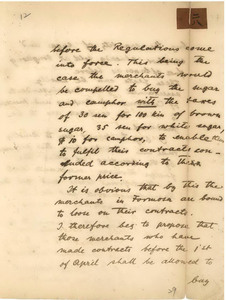 12
before the Regulations come
into force. This being the
case the merchants would
be compelled to buy the sugar
and camphor with the taxes
of 30 sen for 100 kin of brown
sugar, 35 sen for white sugar,
$10 for camphor, to enable
to fulfil their contracts con-
cluded according to their
former price.
It is obvious that by this the
merchants in Formosa are bound
to lose on their contracts.
I therefore beg to propose that
those merchants who have
made contracts before the 1st
of April shall be allowed to
buy